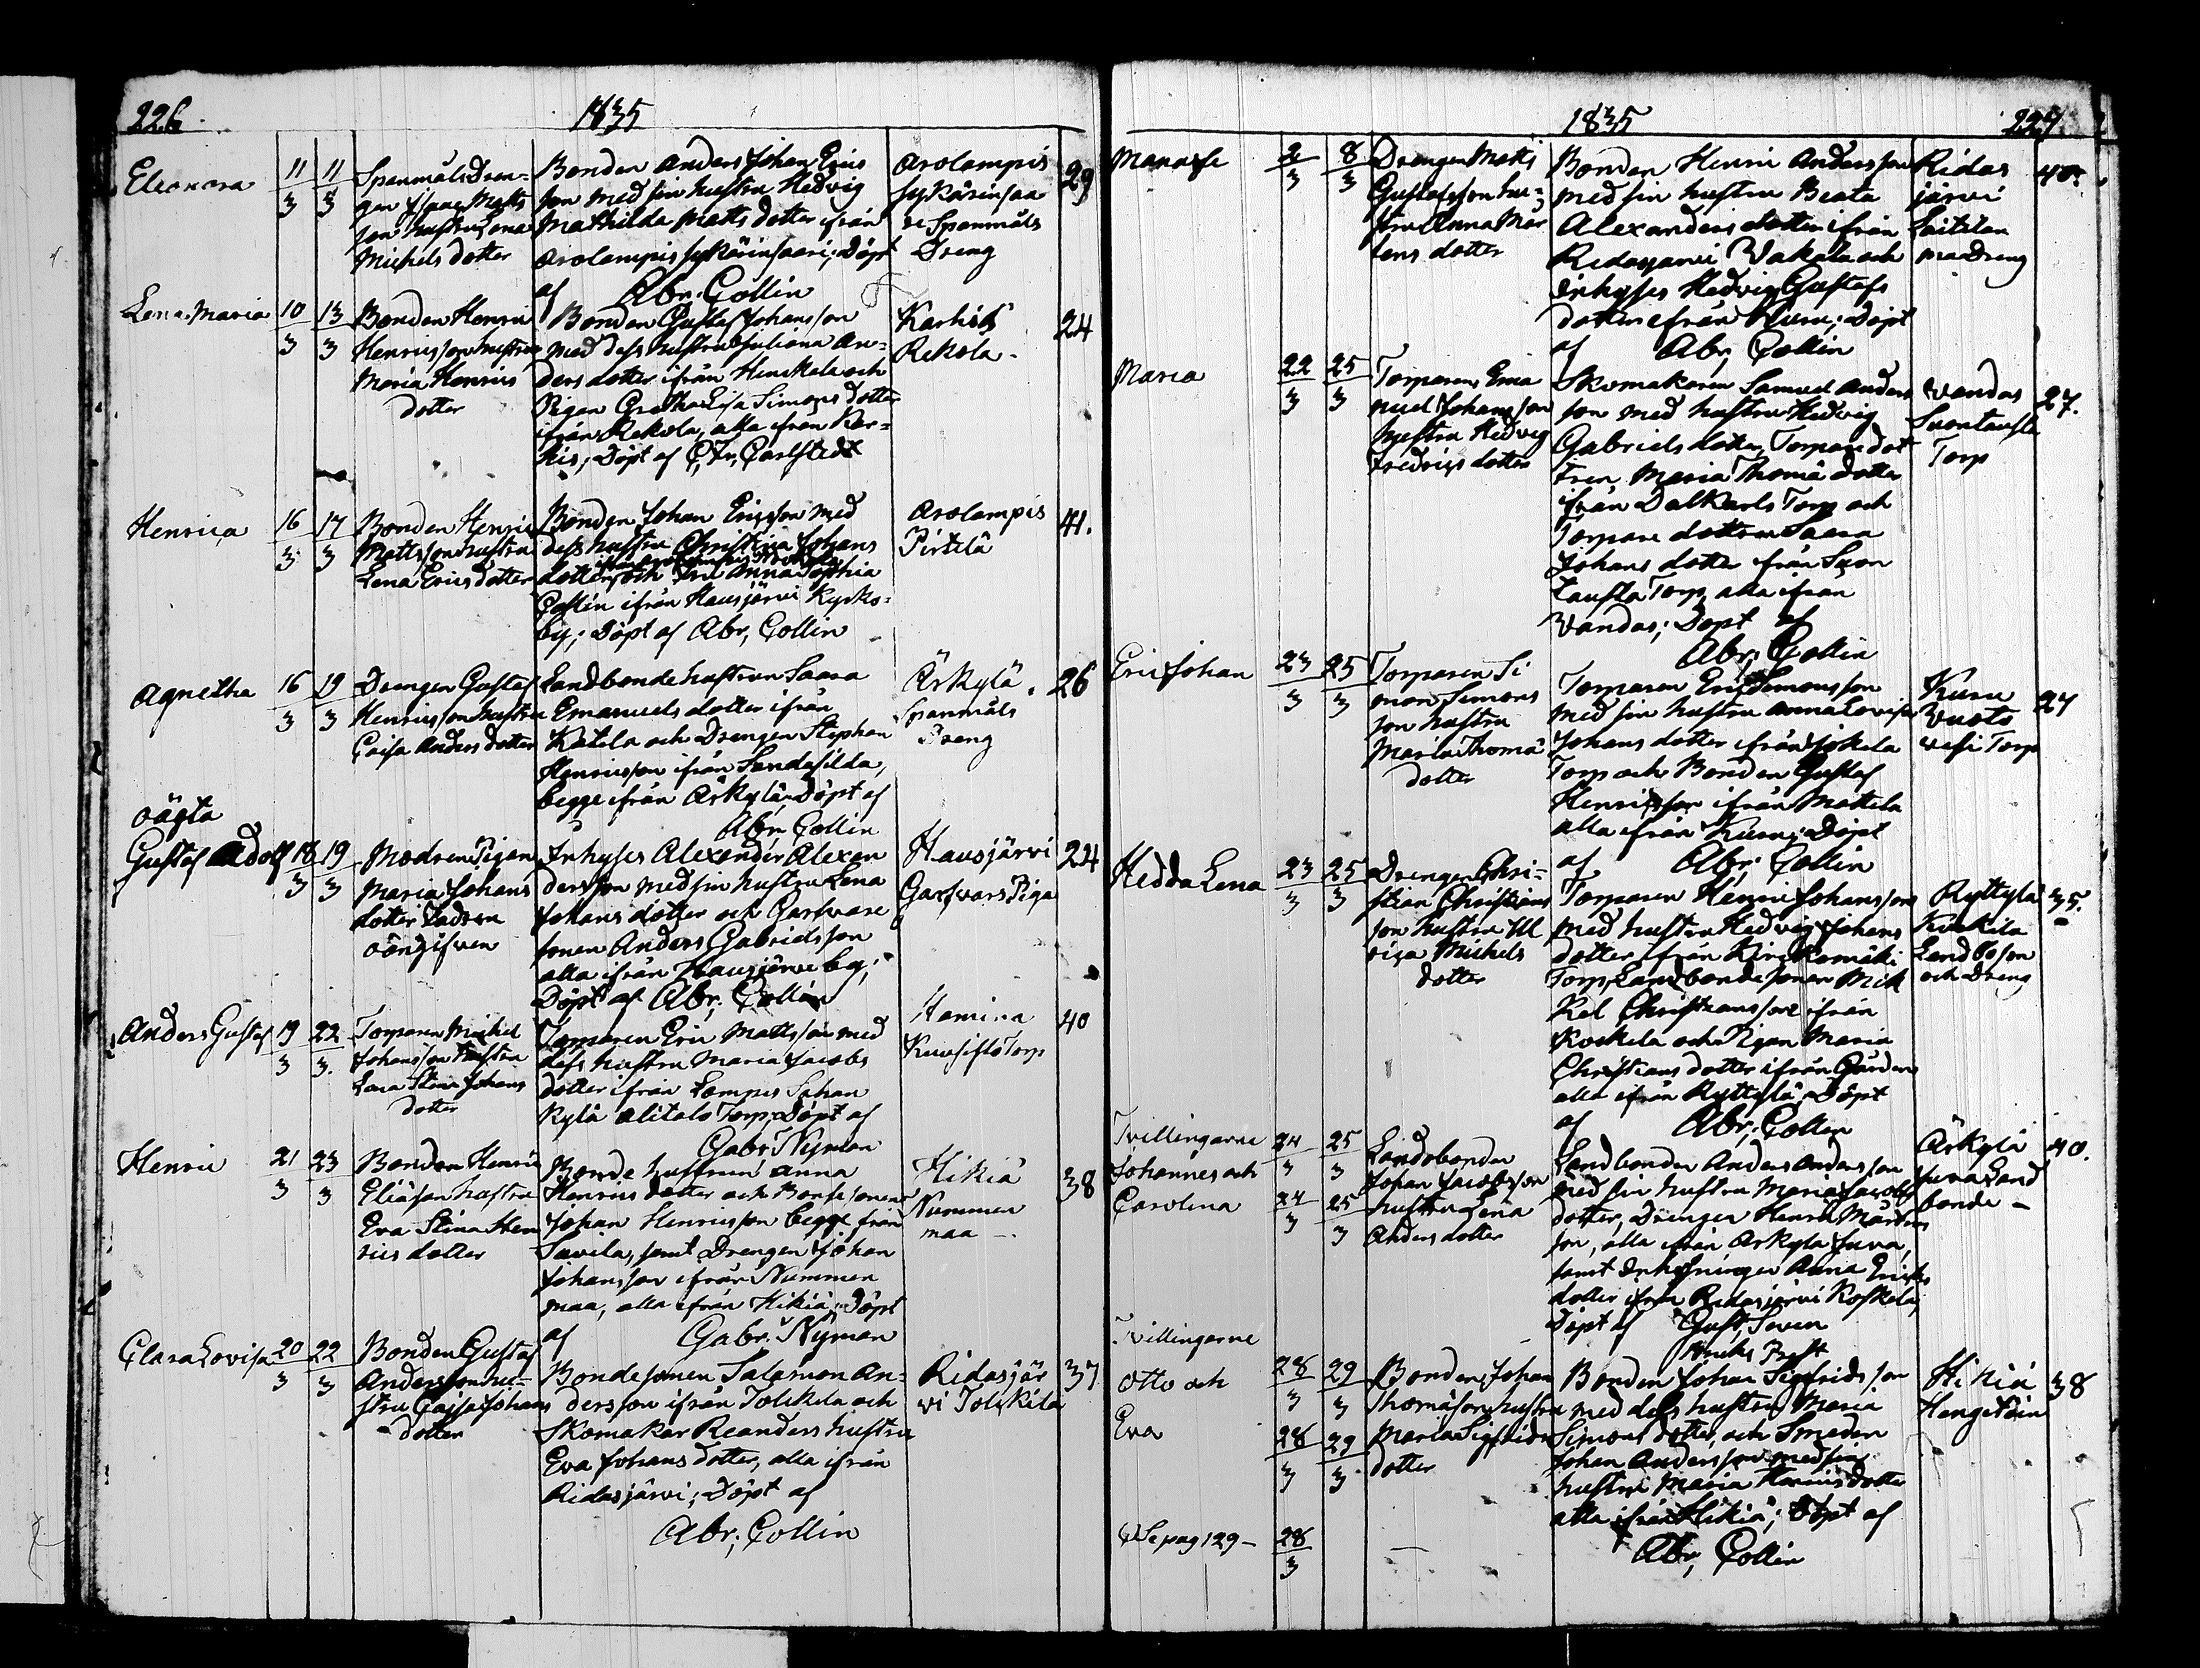 226.
1835
Eleonora
11/3
11/3
Spanmåls Dren-
gen Isaac Matts
son hustru Lena
Michels dotter
Bonden Anders Johan Erics
son med sin hustru Hedvig
Mathilda Matts dotter ifrån
Arolampis Sykärinsaari; Döpt
af Abr. Collin
Arolampis
Sykärinsaa
ri Spanmåls
Dreng
29
Lena Maria
10/3
13/3
Bonden Henric
Henricsson hustru
Maria Henrics
dotter
Bonden Gustaf Johansson
med dess hustru Juliana An-
ders dotter ifrån Henckala och
Pigan Greta Lisa Simons dotter
ifrån Rekola, alla ifrån Kar-
his; Döpt af C. Fr. Carlstedt
Karhis
Rekola
24
Henrica
16/3
17/3
Bonden Henric
Mattsson hustru
Lena Erics dotter
Bonden Johan Ericsson med
dess hustru Christina Johans
dotter och Fru Anna Sophia
Collin ifrån Hausjärvi Kyrko-
by; Döpt af Abr. Collin
Arolampis
Pirtilä
41.
Agnetha
16/3
19/3
Drengen Gustaf
Henricsson hustru
Caisa Anders dotter
Landbonde hustrun Saara
Emanuels dotter ifrån
Katila och Drengen Stephan
Henricsson ifrån Sandasilda,
begge ifrån Ärkylä; Döpt af
Abr. Collin
Ärkylä
Spanmåls
Dreng
26
oägta
Gustaf Adolf
18/3
19/3
Modren Pigan
Maria Johans
dotter Fadren
oangifven
Inhyses Alexander Alexan
dersson med sin hustru Lena
Johans dotter och Garfvare
sonen Anders Gabrielsson
alla ifrån Hausjärvi by;
Döpt af Abr. Collin
Hausjärvi
Garfvars Piga
24
Anders Gustaf
19/3
22/3.
Torparen Michel
Johansson hustru
Lena Stina Johans
dotter
Torparen Eric Mattsson med
dess hustru Maria Jacobs
dotter ifrån Lampis Sahan
kylä Alitalo Torp; Döpt af
Gabr. Nyman
Hamina
Kuusisto Torp
40
Henric
21/3
23/3
Bonden Henric
Eliæson hustru
Eva Stina Hen
rics dotter
Bonde hustrun Anna
Henrics dotter och Bonde sonen
Johan Henricsson begge från
Savila, samt Drengen Johan
Johansson ifrån Nummen
maa, alla ifrån Hikiä; Döpt
af Gabr. Nyman
Hikiä
Nummen
maa
38
Clara Lovisa
20/3
22/3
Bonden Gustaf
Andersson hu-
stru Caisa Johans
dotter
Bondesonen Salamon An-
dersson ifrån Tolkkila och
Skomakar Reanders hustru
Eva Johans dotter, alla ifrån
Ridasjärvi; Döpt af
Abr. Collin
Ridasjär
vi Tolkkila
37
1835
227.
Manasse
2/3
8/3
Drengen Matts
Gustafsson hu-
stru Anna Mår
tens dotter
Bonden Henric Andersson
med sin hustru Beata
Alexanders dotter ifrån
Ridasjärvi Vakala och
Inhyses Hedvig Gustafs
dotter ifrån Kuru; Döpt
af Abr. Collin
Ridas
järvi
Laitilan
maa Dreng
40.
Maria
22/3
25/3
Torparen Ema
nuel Johansson
hustru Hedvig
Fredrics dotter
Skomakaren Samuel Anders
son med hustru Hedvig
Gabriels dotter, Torpare dot
tren Maria Thomæ dotter
ifrån Dalkarls Torp och
Torpare dottren Saara
Johans dotter från Suon
tausta Torp, alla ifrån
Vandas; Döpt af
Abr. Collin
Vandas
Suontausta
Torp
27.
Eric Johan
23/3
25/3
Torparen Si
mon Simons
son hustru
Maria Thomæ
dotter
Torparen Eric Simonsson
med sin hustru Anna Lovisa
Johans dotter ifrån Jokela
Torp och Bonden Gustaf
Henricsson ifrån Mattila
alla ifrån Kuru; Döpt
af Abr. Collin
Kuru
Vuoto
vesi Torp
27
Hedda Lena
23/3
25/3
Drengen Chri-
stian Christians
son hustru Ul
rica Michels
dotter
Torparen Henric Johansson
med hustru Hedvig Johans
dotter ifrån Kirckomäki
Torp, Landbondesonen Mic
kel Christiansson ifrån
Koskela och Pigan Maria
Christians dotter ifrån Gården
alla ifrån Ryttylä; Döpt
af Abr. Collin
Ryttylä
Koskela
Landboson
och Dreng
35.
Tvillingarne
Johannes och
Carolina
24/3
25/3
24/3
25/3
Landbonden
Johan Jacobsson
hustru Lena
Anders dotter
Landbonden Anders Andersson
med sin hustru Maria Jacobs
dotter, Drengen Henric Mårtens
son, alla ifrån Ärkylä Juva,
samt Inhysingen Anna Erics
dotter ifrån Ridasjärvi Koskela;
Döpt af Gust. Siven
Bruks Prest
Ärkylä
Juva Land
bonde
40.
Tvillingarne
Otto och
Eva
28/3
29/3
28/3
29/3
Bonden Johan
Thomæson hustru
Maria Sigfrids
dotter
Bonden Johan Sigfridsson
med dess hustru Maria
Simons dotter, och Smeden
Johan Andersson med sin
hustru Maria Henrics dotter
alla ifrån Hikiä; Döpt af
Abr. Collin
Hikiä
38
Se pag 129
28/3